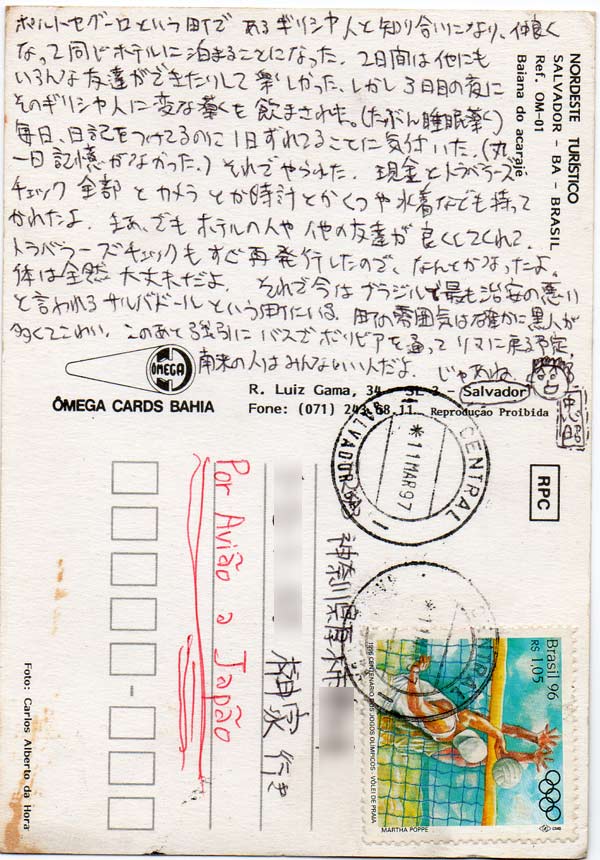 ポルトセグーロという町で あるギリシャ人と知り合いになり、仲良く
なって同じホテルに泊まることになった。2日間は他にも
いろんな友達ができたりして楽しかった。しかし3日目の夜に
そのギリシャ人に変な薬を飲まされた。(たぶん睡眠薬)
毎日、日記をつけてるのに1日ずれてることに気付いた。(丸
一日記憶がなかった。)それでやられた。現金とトラベラーズ
チェック全部とカメラとか時計とかくつや水着なども持って
かれたよ。まあ、でもホテルの人や他の友達が良くしてくれて、
トラベラーズチェックもすぐ再発行したので、なんとかなったよ。
体は全然大丈夫だよ。それで今はブラジルで最も治安の悪い
と言われるサルバドールという町にいる。町の雰囲気は確かに黒人が
多くてこわい。このあと強引にバスでボリビアを通ってリマに戻る予定。
南米の人はみんないい人だよ。じゃあね
NORDESTE TURÍSTICO
SALVADOR - BA - BRASIL
Ref. OM-01
Baiana do acarajé
ÔMEGA
ÔMEGA CARDS BAHIA
R. Luiz Gama, 34 - SL 2 - Salvador
Fone: (071) 243.68.11. Reprodução Proibida
CENTRAL
*11 MAR 97
SALVADOR
RPC
神奈川県厚木市
榊家 行き
Por Avião a Japão
Brasil 96
R$ 1,05
1996 CENTENÁRIO DOS JOGOS OLÍMPICOS - VÔLEI DE PRAIA
MARTHA POPPE
Foto: Carlos Alberto da Hora